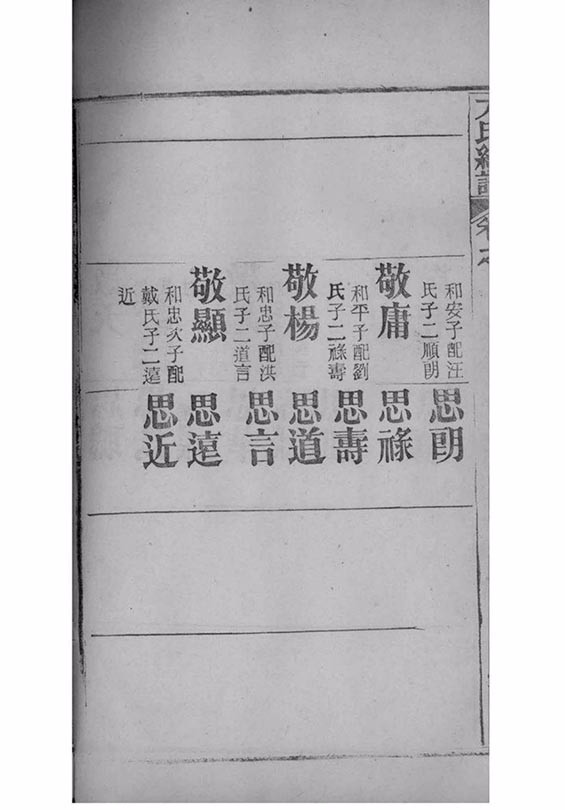 方氏統譜
和安子配汪
氏子二順朗
思朗
敬庸
和平子配劉
氏子二祿壽
思祿
思壽
敬楊
和忠子配洪
氏子二道言
思道
思言
敬顯
和忠次子配
戴氏子二遠
近
思遠
思近